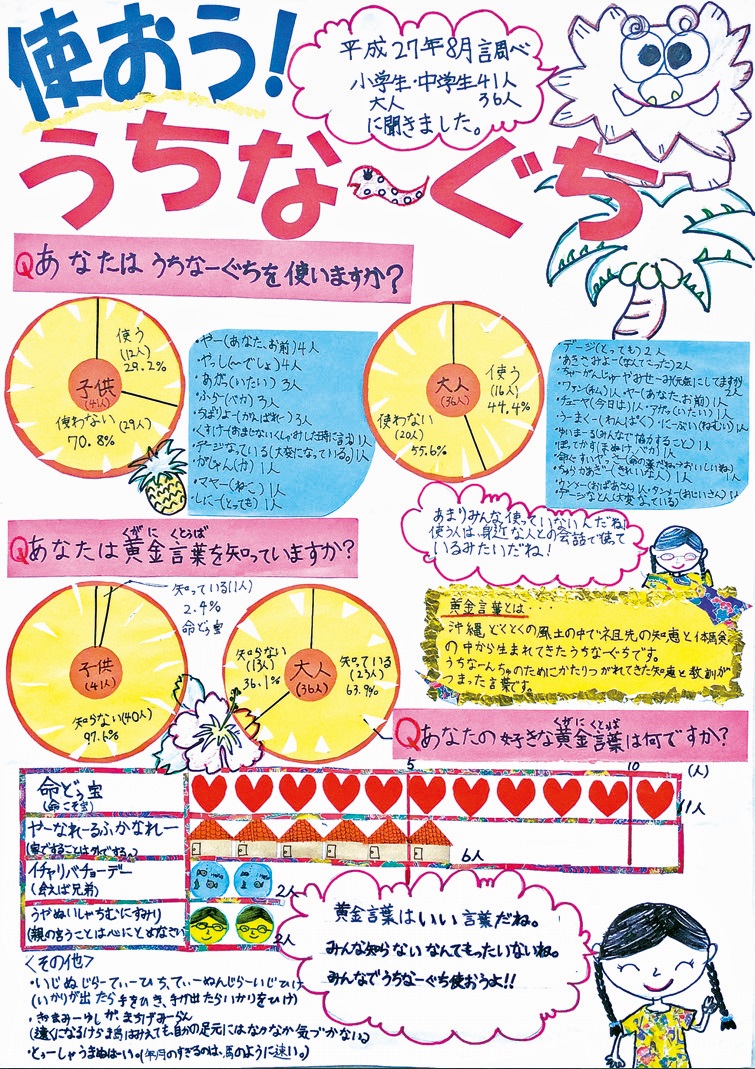 使おう!
うちな〜ぐち
平成27年8月調べ
小学生・中学生41人
大人 36人
に聞きました。
Qあなたは うちなーぐちを使いますか?
使う
(12人)
29.2%
子供
(41人)
使わない(29人)
70.8%
・やー(あなた、お前)4人
・やっし(〜でしょ)4人
・あがっ(いたい)3人
・ふらー(バカ)3人
・ちばりよー(がんばれー)3人
・くすけー(おまじない くしゃみした時に言う)1人
・デージなっている(大変になっている。)1人
・がじゃん(か)1人
・マヤー(ねこ)1人
・しにー(とっても)1人
使う
(16人)
44.4%
大人
(36人)
使わない
(20人)
55.6%
・デージ(とっても)2人
・あきさみよー(なんてこった)2人
・ちゃーがんじゅーやみせーみ(元気にしてますか)
2人
・ワラバー
・チューヤ(今日は)1人・アガッ(いたい)1人
・うーまくー(わんぱく)1人・にーぶい(ねむい)1人
・ゆいまーる(みんなで協力すること)1人
・ちゅらかーぎー(きれいな人)1人
・ウンメー(おばあさん)1人・タンメー(おじいさん)1人
・デージなとん(大変なっている)
あまりみんな使っていないんだね!
使う人は、身近な人との会話で使って
いるみたいだね!
Qあなたは黄金言葉を知っていますか?
くがに くとぅば
知っている(1人)
2.4%
命どぅ宝
子供
(41人)
知らない(40人)
97.6%
知らない
(13人)
36.1%
大人
(36人)
知っている
(23人)
63.9%
黄金言葉とは・・・
沖縄どくとくの風土の中で祖先の知恵と体験
の中から生まれてきたうちなーぐちです。
うちなーんちゅのためにかたりつがれてきた知恵と教訓が
つまった言葉です。
Qあなたの好きな黄金言葉は何ですか?
くがに くとぅば
5 10 (人)
命どぅ宝
(命こそ宝)
11人
やーなれーるふかなれー
(家ですることは外でする。)
6人
イチャリバチョーデー
(会えば兄弟)
2人
うやぬいしゃちむにすみり
(親の言うことは心にとめなさい)
2人
<その他>
・いじぬじらーてぃーひち、てぃーぬんじらーいじひけ
(いかりが出たら手をひき、手が出たらいかりをひけ)
(遠くになるけらま島はみえても、自分の足元にはなかなか気づかない)
・とぅーしゃうまぬはーい。(年月のすぎるのは、馬のように速い。)
黄金言葉はいい言葉だね。
みんな知らないなんてもったいないね。
みんなでうちなーぐち使おうよ!!